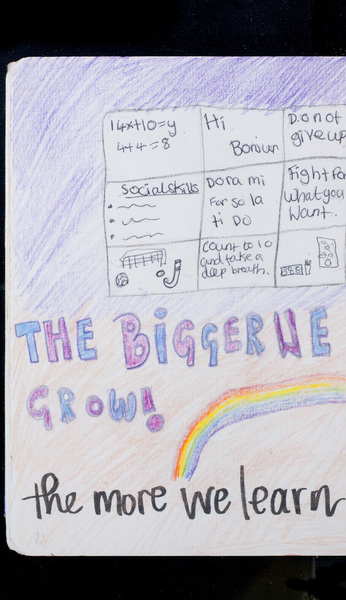 14x+10=y
4+4=8
Hi
Bonjour
Do not
give up
Social skills
Do ra mi
For so la
ti DO
Fight For
what you
Want.
Count to 10
and take a
deep breath.
THE BIGGER WE
GROW!
the more we learn